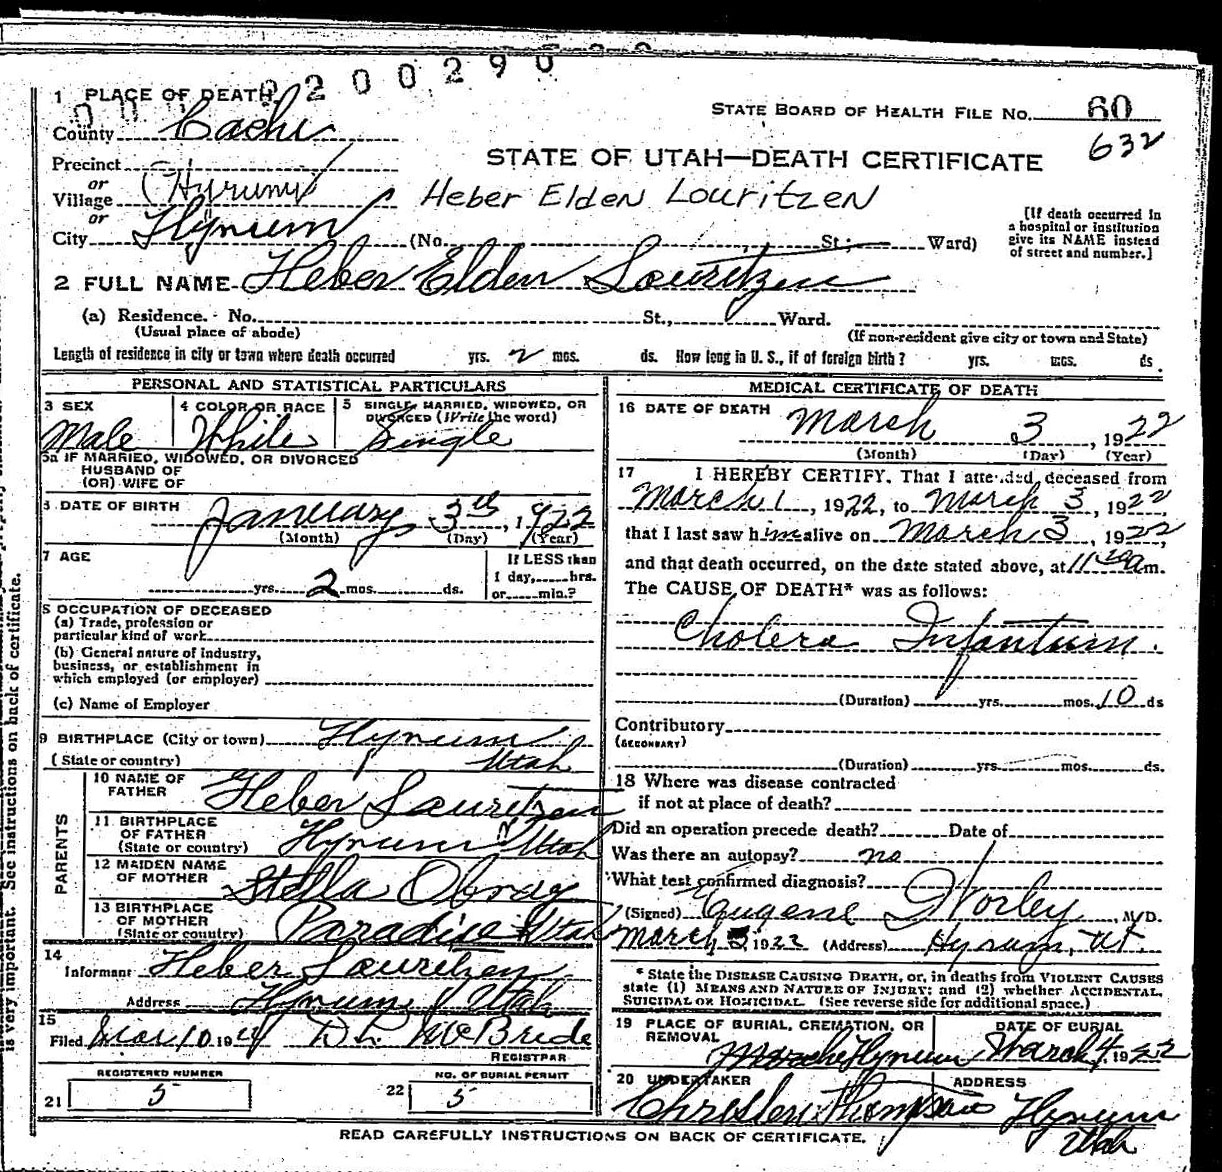 0 0 0 0 2 0 0 2 9 0
1 PLACE OF DEATH
STATE BOARD OF HEALTH FILE NO. 60
County Cache
632
STATE OF UTAH—DEATH CERTIFICATE
Precinct
or
Village Hyrum
Heber Elden Louritzen
or
City Hyrum (No. St; Ward)
[If death occurred in
a hospital or institution
give its NAME instead
of street and number.]
2 FULL NAME Heber Elden Lauritzen
(a) Residence. No. St., Ward.
(Usual place of abode)
(If non-resident give city or town and State)
Length of residence in city or town where death occurred yrs. 2 mos. ds. How long in U. S., if of foreign birth? yrs. mos. ds.
PERSONAL AND STATISTICAL PARTICULARS
3 SEX
Male
4 COLOR OR RACE
White
5 SINGLE, MARRIED, WIDOWED, OR
DIVORCED (Write the word)
Single
5a IF MARRIED, WIDOWED, OR DIVORCED
HUSBAND OF
(OR) WIFE OF
6 DATE OF BIRTH
January 3th, 1922
(Month) (Day) (Year)
7 AGE
yrs. 2 mos. ds.
If LESS than
1 day, hrs.
or min.?
8 OCCUPATION OF DECEASED
(a) Trade, profession or
particular kind of work
(b) General nature of industry,
business, or establishment in
which employed (or employer)
(c) Name of Employer
9 BIRTHPLACE (City or town) Hyrum
(State or country) Utah
PARENTS
10 NAME OF
FATHER Heber Lauritzen
11 BIRTHPLACE
OF FATHER
(State or country) Hyrum Utah
12 MAIDEN NAME
OF MOTHER Stella Obray
13 BIRTHPLACE
OF MOTHER
(State or country) Paradise Utah
14
Informant Heber Lauritzen
Address Hyrum Utah
15
Filed Mar 10 19 McBride
REGISTRAR
REGISTERED NUMBER
21 5
NO. OF BURIAL PERMIT
22 5
MEDICAL CERTIFICATE OF DEATH
16 DATE OF DEATH
March 3, 1922
(Month) (Day) (Year)
17 I HEREBY CERTIFY, That I attended deceased from
March 1, 1922, to March 3, 1922,
that I last saw him alive on March 3, 1922,
and that death occurred, on the date stated above, at 11 am.
The CAUSE OF DEATH* was as follows:
Cholera Infantum.
(Duration) yrs. mos. 10 ds
Contributory
(SECONDARY)
(Duration) yrs. mos. ds.
18 Where was disease contracted
if not at place of death?
Did an operation precede death? Date of
Was there an autopsy? no
What test confirmed diagnosis?
(Signed) Eugene Worley, M.D.
March 1922 (Address) Hyrum, Ut.
* State the DISEASE CAUSING DEATH, or, in deaths from VIOLENT CAUSES
state (1) MEANS AND NATURE OF INJURY; and (2) whether ACCIDENTAL,
SUICIDAL OR HOMICIDAL. (See reverse side for additional space.)
19 PLACE OF BURIAL, CREMATION, OR
REMOVAL
Hyrum
DATE OF BURIAL
March 4, 1922
20 UNDERTAKER
ADDRESS
Hyrum
Utah
READ CAREFULLY INSTRUCTIONS ON BACK OF CERTIFICATE.
is very important. See instructions on back of certificate.